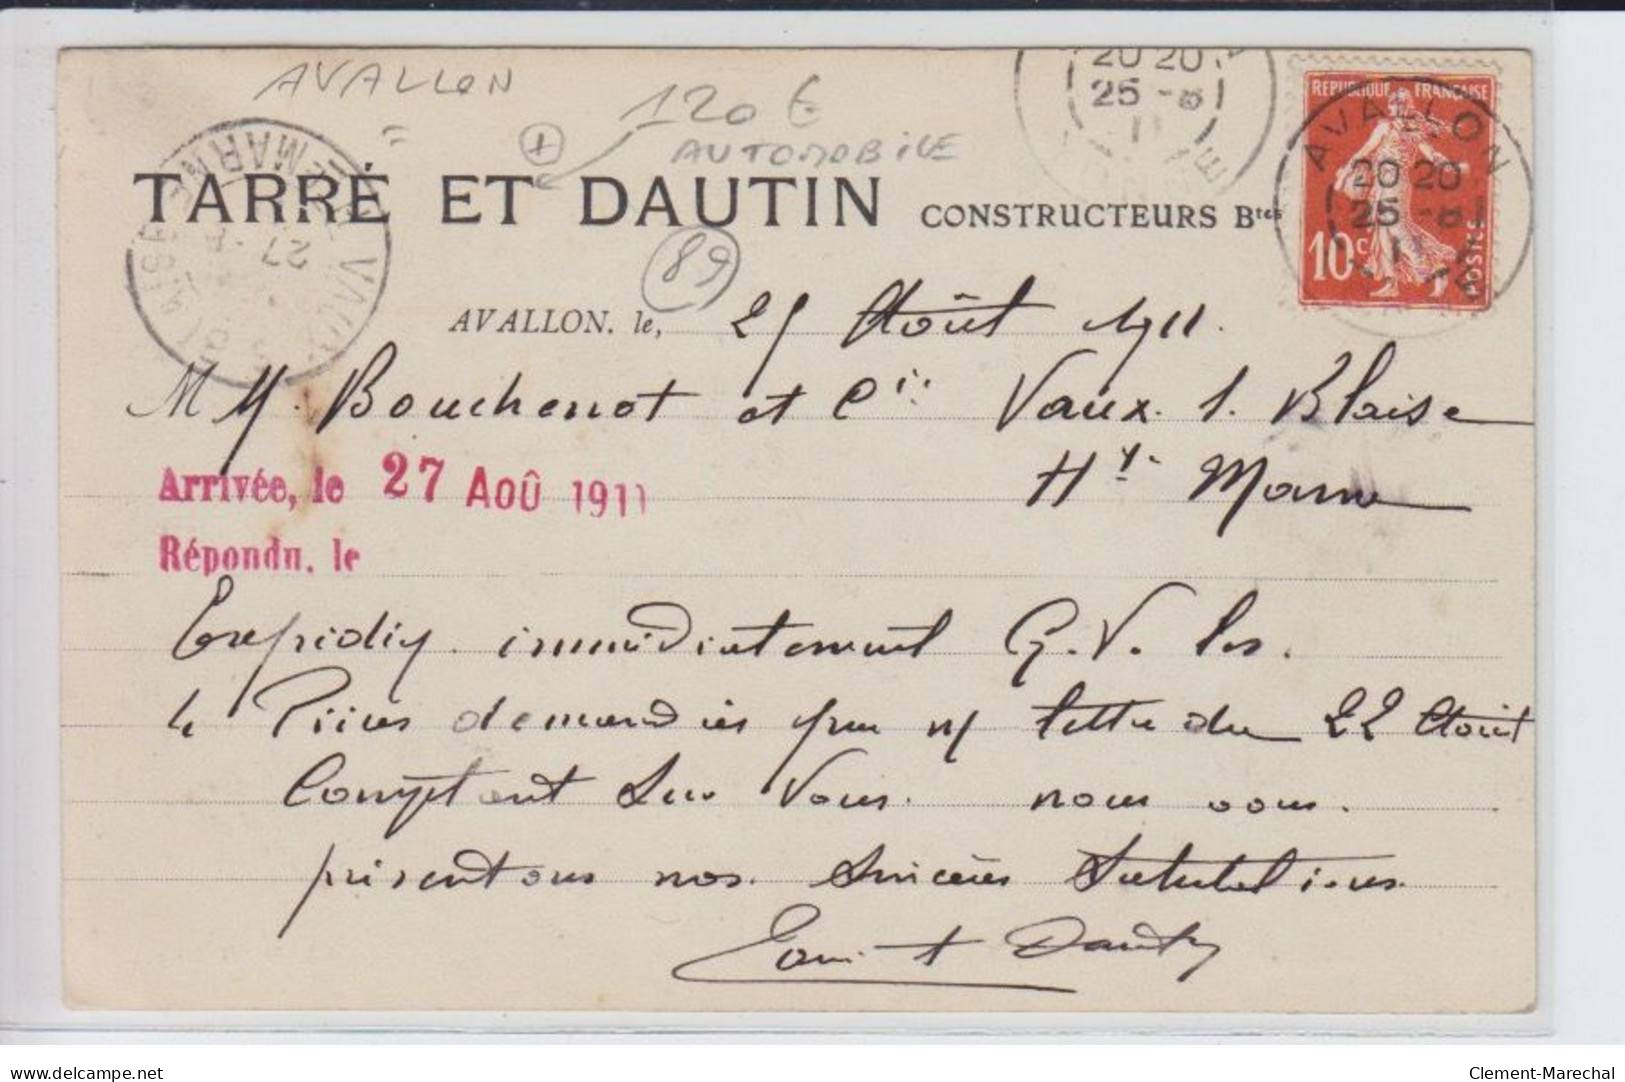 AVALLON
120 €
AUTOMOBILE
20 20
25 -8
11
REPUBLIQUE FRANÇAISE
AVALLON
20 20
25 -8
11
10c POSTES
TARRÉ ET DAUTIN CONSTRUCTEURS Btés
89
27
AVALLON, le, 25 Août 1911.
MM. Bouchenot et Cie Vaux. s. Blaise
Hte Marne
Arrivée, le 27 AOÛ 1911
Répondu, le
Expidiez immédiatement G.V. les
4 Pièces demandées par n/ lettre du 22 Août
Comptant sur Vous. nous vous
présentons nos sincères Salutations
Dautin
delcampe.net
Clement-Marechal